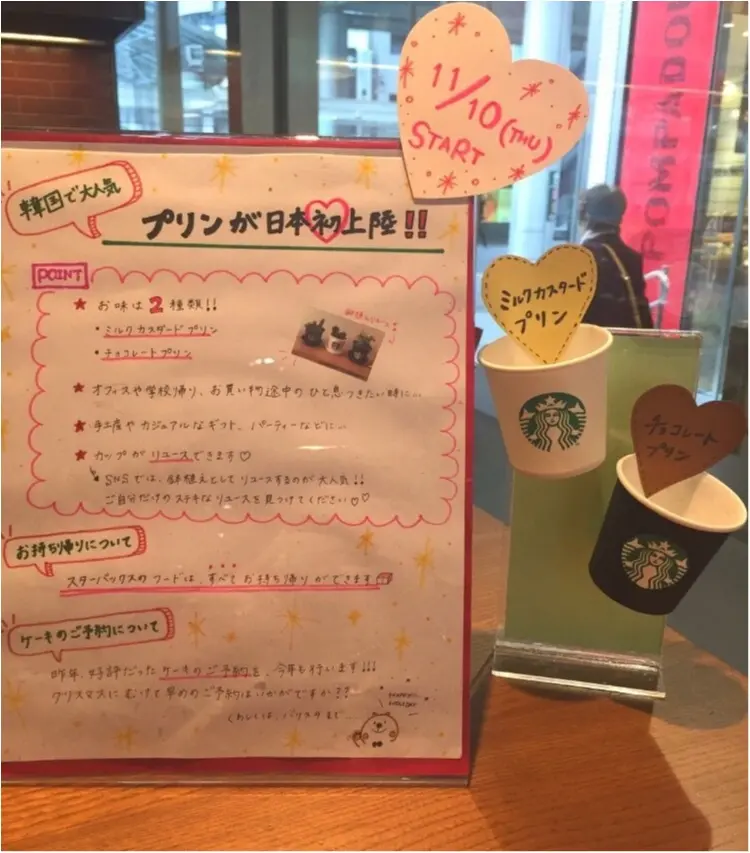 11/10(THU)
START
韓国で大人気
プリンが日本初上陸!!
POINT
★ お味は2種類!!
・ミルクカスタードプリン
・チョコレートプリン
★ オフィスや学校帰り、お買い物途中のひと息つきたい時に…
★ 手土産やカジュアルなギフト、パーティーなどに…
★ カップがリユースできます♡
SNSでは、鉢植えとしてリユースするのが大人気!!
ご自分だけのステキなリユースを見つけてください♡♡
お持ち帰りについて
スターバックスのフードは、すべてお持ち帰りができます
ケーキのご予約について
昨年、好評だったケーキのご予約を、今年も行います!!!
クリスマスにむけて早めのご予約はいかがですか??
くわしくは、バリスタまで…
HAPPY
HOLIDAY
ミルクカスタード
プリン
チョコレート
プリン
POMPADOU